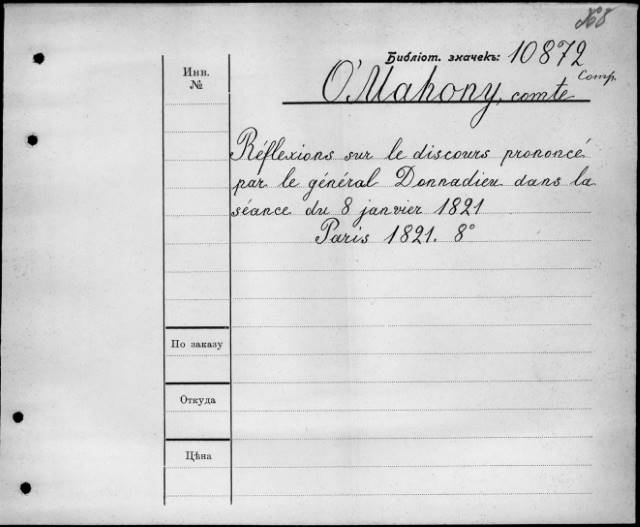 Библіот. значекъ: 10872
Comp.
Инв.
№
O'Mahony, comte
Réflexions sur le discours prononcé
par le général Donnadieu dans la
séance du 8 janvier 1821
Paris 1821. 8°
По заказу
Откуда
Цѣна